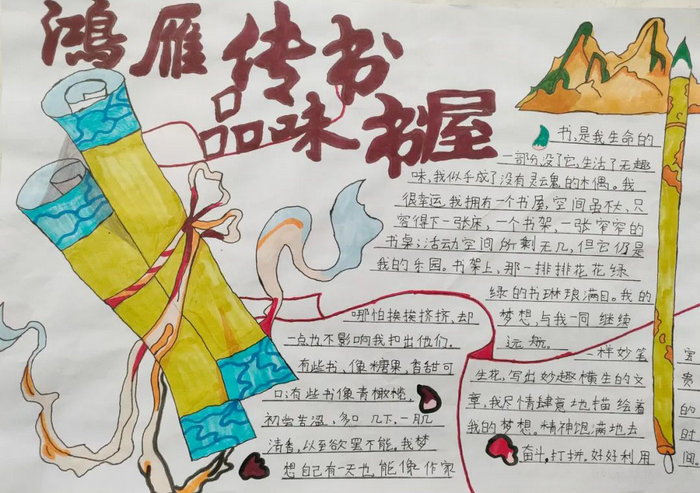 鸿雁传书
品味书屋
书,是我生命的
一部分,没了它,生活了无趣
味,我似乎成了没有灵魂的木偶。我
很幸运,我拥有一个书屋,空间虽不大、只
容得下一张床,一个书架,一张窄窄的
书桌;活动空间所剩无几,但它仍是
我的乐园。书架上,那一排排花花绿
绿的书琳琅满目。我的
梦想与我一同继续
远航。
哪怕挨挨挤挤、却
一点也不影响我扣出他们。
有些书,像糖果,香甜可
口;有些书像青橄榄,
初尝苦涩,多口几下,一股
清香,以至欲罢不能。我梦
想自己有一天也能像作家
一样妙笔
生花,写出妙趣横生的文
章,我尽情肆意地描绘着
我的梦想。精神饱满地去
奋斗,打拼,好好利用
宝
贵
的
时
间